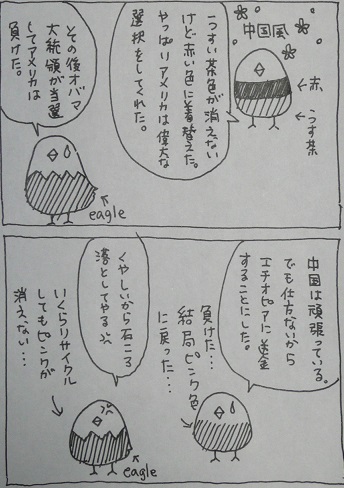 中国風
←赤
←うす茶
うすい茶色が消えない
けど赤い色に着替えた。
やっぱりアメリカは偉大な
選択をしてくれた。
その後オバマ
大統領が当選
してアメリカは
負けた。
eagle
中国は頑張っている。
でも仕方ないから
エチオピアに送金
することにした。
負けた…
結局ピンク色
に戻った…
くやしいから石ころ
落としてやる
いくらリサイクル
してもピンクが
消えない…
eagle